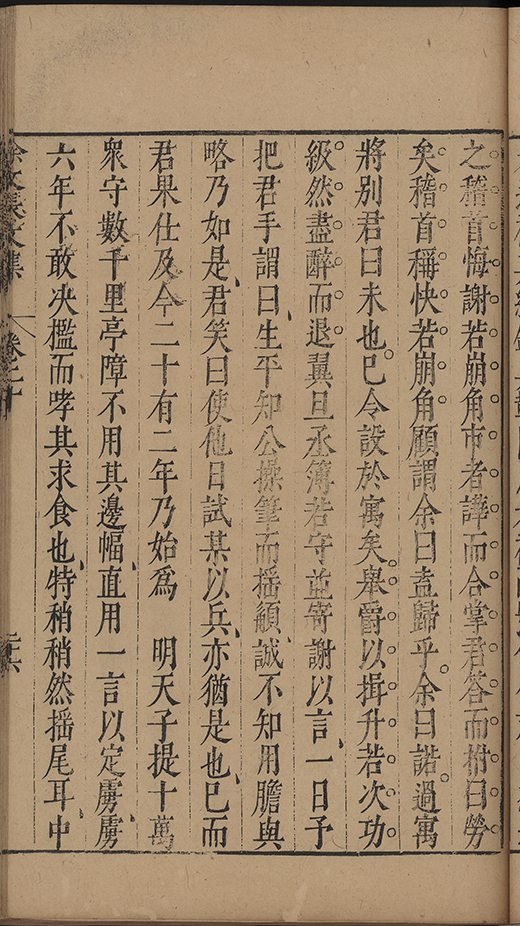 之稽首悔謝若崩角市者譁而合掌君答而拊曰勞
矣稽首稱快若崩角顧謂余曰盍歸乎余曰諾過寓
將別君曰未也已令設於寓矣舉爵以揖升若次功
級然盡醉而退翼旦丞簿若守並寄謝以言一日予
把君手謂曰生平知公操筆而揺顲誠不知用膽與
略乃如是君笑曰使他日試某以兵亦猶是也已而
君果仕及今二十有二年乃始爲 明天子提十萬
衆守數千里亭障不用其邊幅直用一言以定虜虜
六年不敢决檻而哮其求食也特稍稍然揺尾耳中
徐文長文集 卷之十 二六